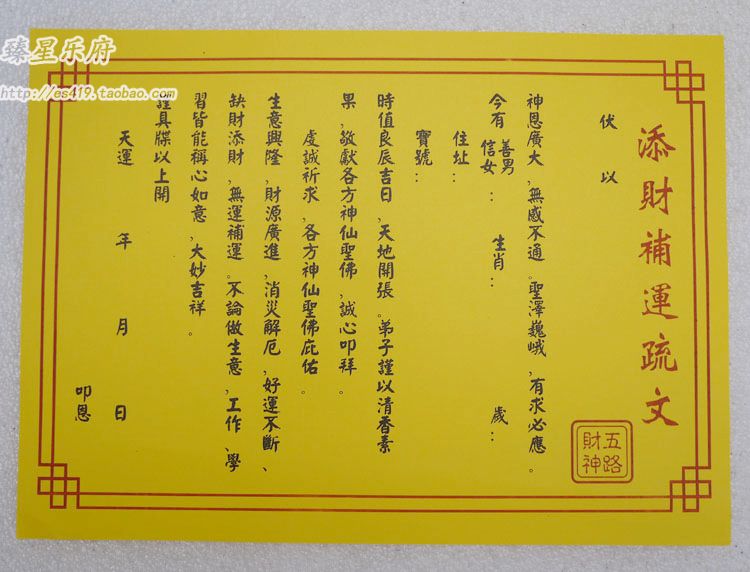 臻星乐府
http://es419.taobao.com
添財補運疏文
五路
財神
伏以
神恩廣大,無感不通。聖澤巍峨,有求必應。
今有善男信女: 生肖: 歲:
住址:
寶號:
時值良辰吉日,天地開張。弟子謹以清香素
果,敬獻各方神仙聖佛,誠心叩拜。
虔誠祈求,各方神仙聖佛庇佑。
生意興隆,財源廣進,消災解厄,好運不斷、
缺財添財,無運補運。不論做生意,工作、學
習皆能稱心如意,大妙吉祥。
謹具牒以上開
天運 年 月 日
叩恩